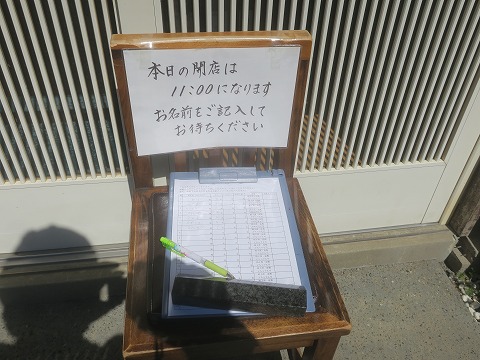 本日の閉店は
11:00になります
お名前をご記入して
お待ちください